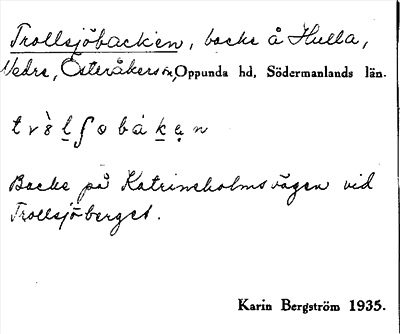 Trollsjöbacken, backe å Hulla,
Nedre, Österåkers sn, Oppunda hd, Södermanlands län.
Backe på Katrineholmsvägen vid
Trollsjöberget.
Karin Bergström 1935.